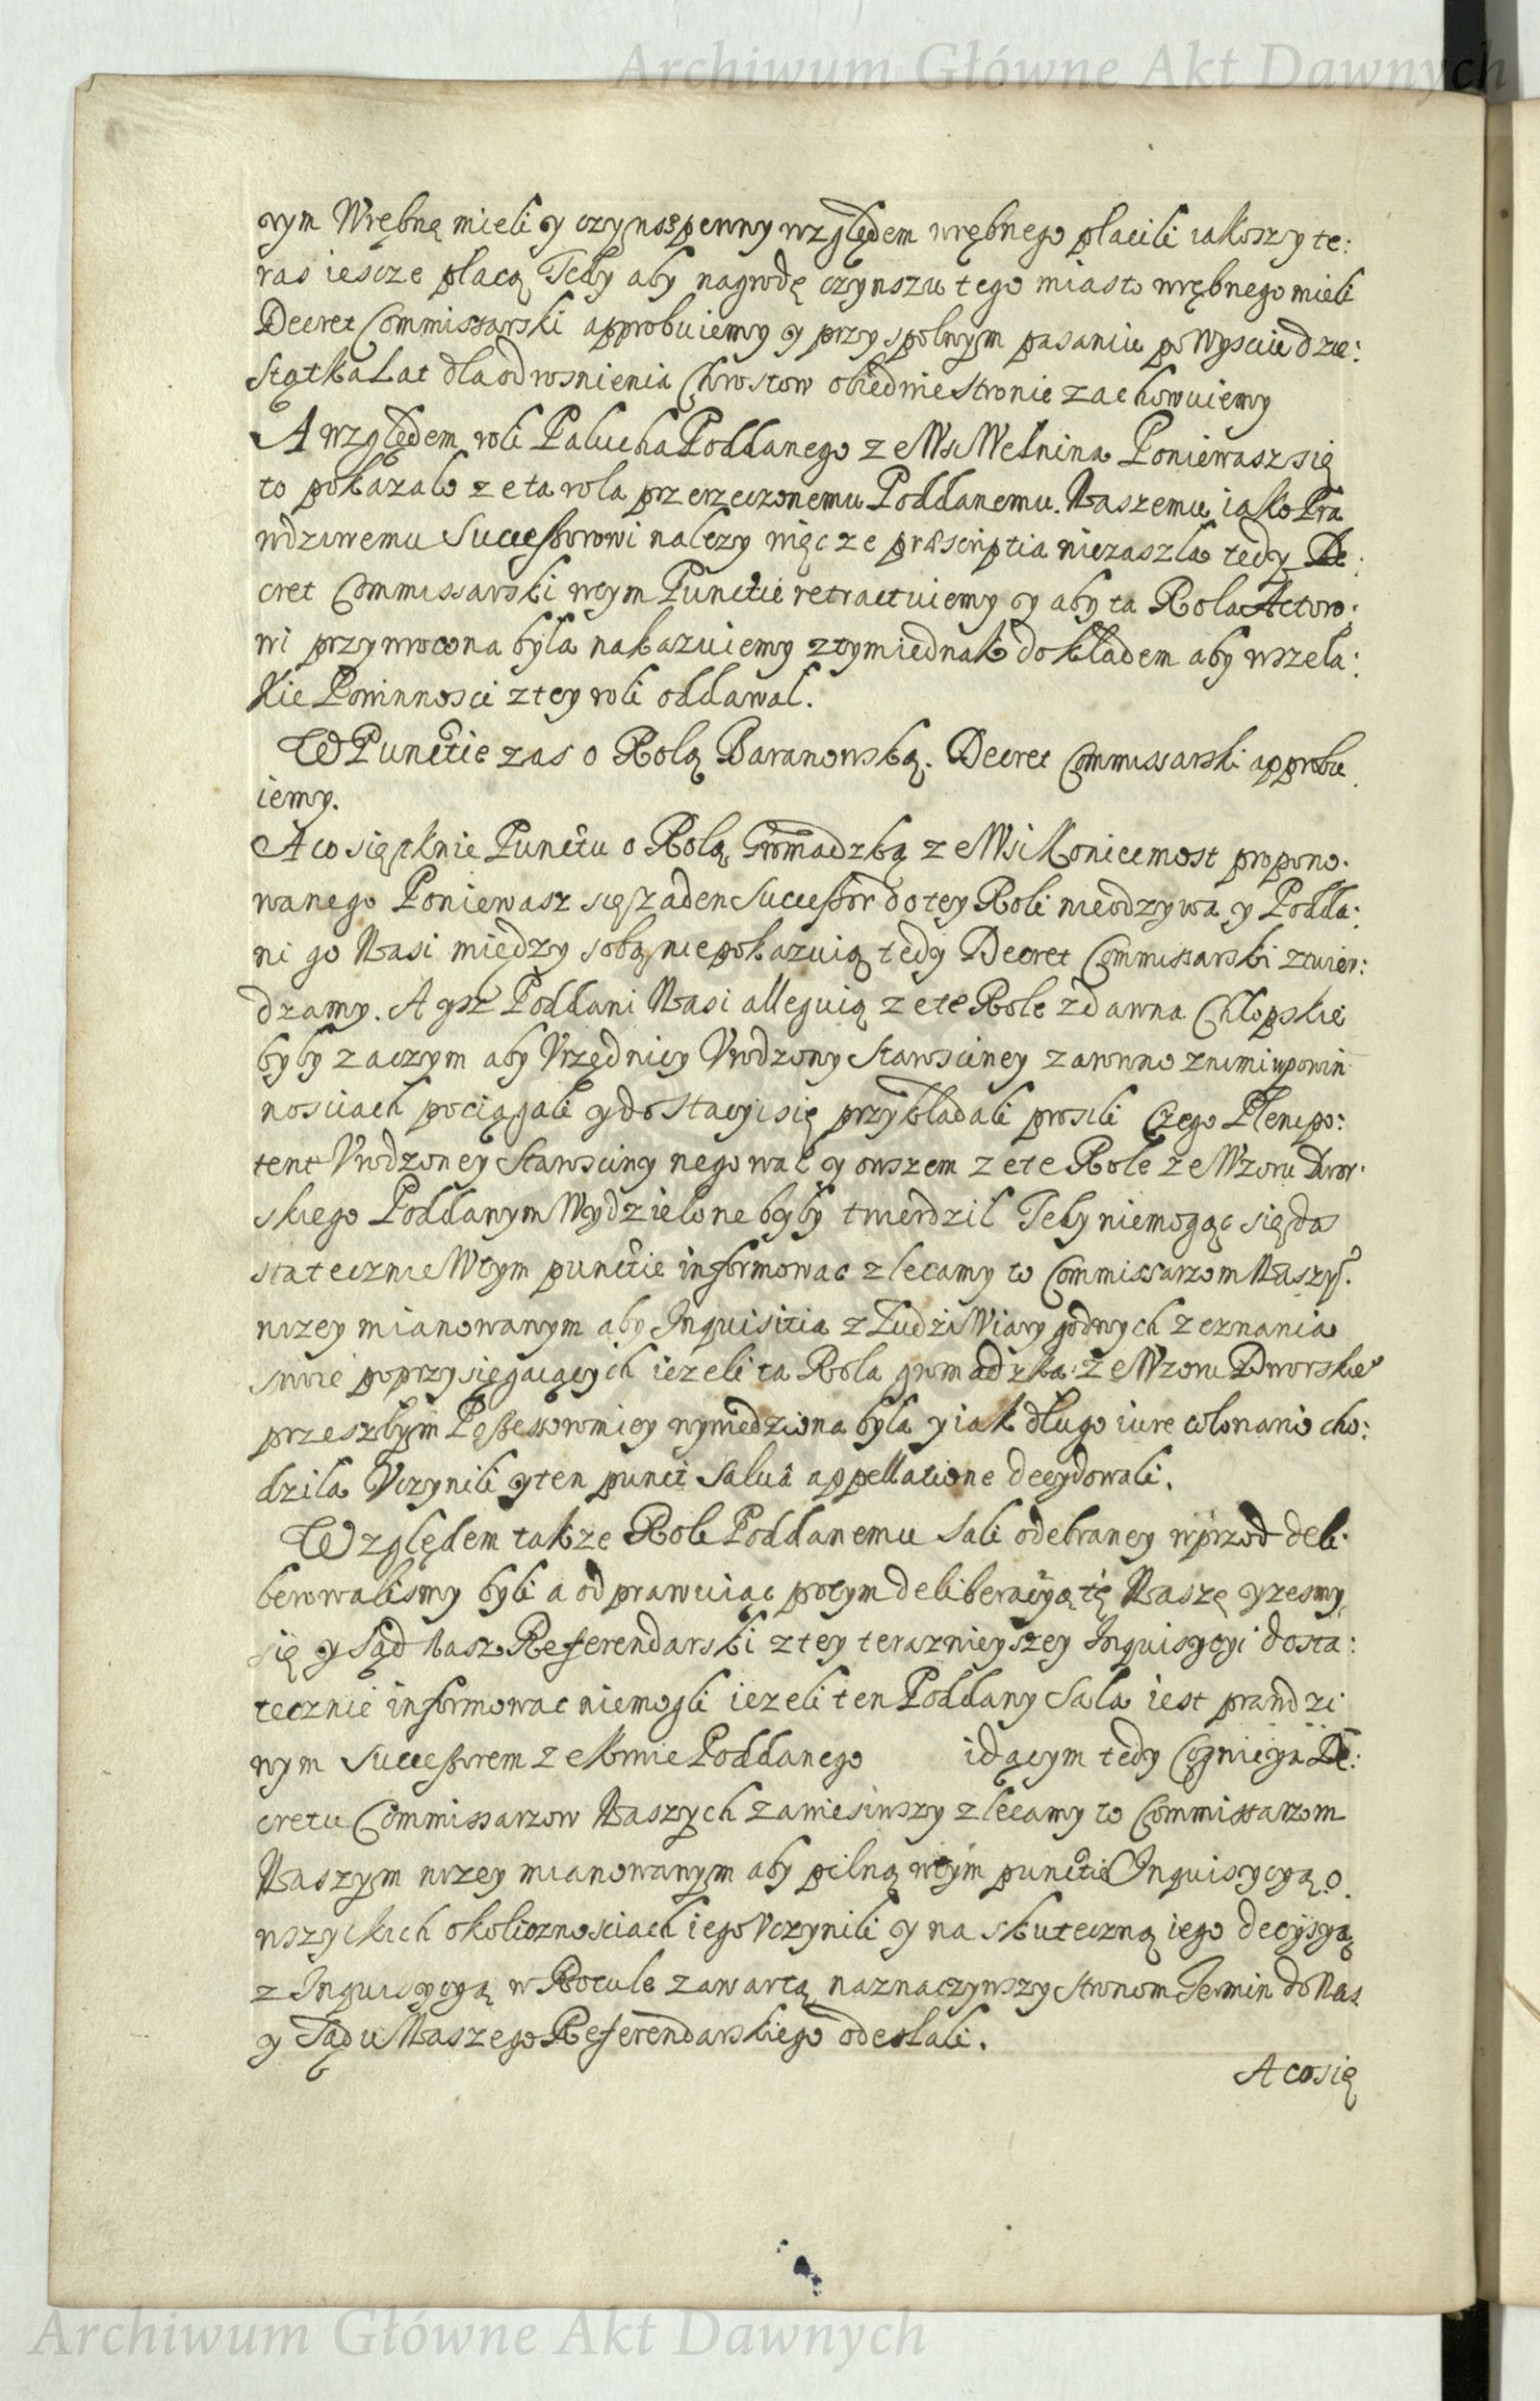 Archiwum Główne Akt Dawnych
rym Wrębną mieli y czynsz pewny względem wrębnego płacili iakoszy te:
ras iescze płacą Tedy aby nagrodę czynszu tego miasto wrębnego mieli
Decret Commissarski approbuiemy y przy spolnym pasaniu po Wysciu dzie:
siątka Lat dla odrosnienia Chrostow obiedwie stronie zachowuiemy
A względem roli Palucha Poddanego ze Wsi Wełnina Poniewasz się
to pokazało ze ta rola przerzeczonemu Poddanemu Naszemu iako Pra
wdziwemu Successorowi nalezy więc ze præscriptia niezaszła tedy De:
cret Commissarski wtym Punctie retractuiemy y aby ta Rola Actoro:
wi przywrocona była nakazuiemy ztym iednak dokładem aby wszela:
kie Powinnosci z tey roli oddawał.
W Punctie zas o Rolą Baranowską. Decret Commissarski approbu
iemy.
A co się tknie Punctu o Rolą Gromadzką ze Wsi Koniecmost propono:
wanego Poniewasz się zaden Successor do tey Roli nieodzywa y Podda:
ni go Nasi między sobą niepokazuią tedy Decret Commissarski ztwier:
dzamy. A ysz Poddani Nasi alleguią ze te Role zdawna Chłopskie
były zaczym aby Vrzędnicy Vrodzony Starosciney zarowno znimi wpowin
nosciach pociągali y do Stacyi się przykładali prosili Czego Plenipo:
tent Vrodzoney Starosciny negował y owszem ze te Role ze Wzoru Dwor:
skiego Poddanym Wydzielone były twierdził Tedy niemogąc się do
statecznie Wtym punctie informowac zlecamy to Commissarzom Naszym
nizey mianowanym aby Inquisitia z Ludzi Wiary godnych zeznania
swoie poprzysięgaiących iezeli ta Rola gromadzka ze Wzoru Dworskie
przeszłym Possessorowi ey wymiedziona była y iak długo iure colonario cho:
dziła Vczynili y ten punct salva appellatione decydowali.
Względem takze Roli Poddanemu Sali odebraney wprzod deli:
berowalismy byli a odprawuiąc potym deliberacyą tę Naszę yzesmy
się y Sąd Nasz Referendarski z tey terazniejszey Inquisycyi dosta:
tecznie informowac niemogli iezeli ten Poddany Sala iest prawdzi
wym successorem ze krwie Poddanego idącym tedy Cognicyą De:
cretu Commissarzow Naszych zawiesiwszy zlecamy to Commissarzom
Naszym nizey mianowanym aby pilną wtym punctie Inquisycyą o
wszyskich okolicznosciach iego Vczynili y na skuteczną iego decysyą
z Inquisycyą w Rotule zawartą naznaczywszy stronom Termin do Nas
y Sądu Naszego Referendarskiego odesłali.
A co się
Archiwum Główne Akt Dawnych